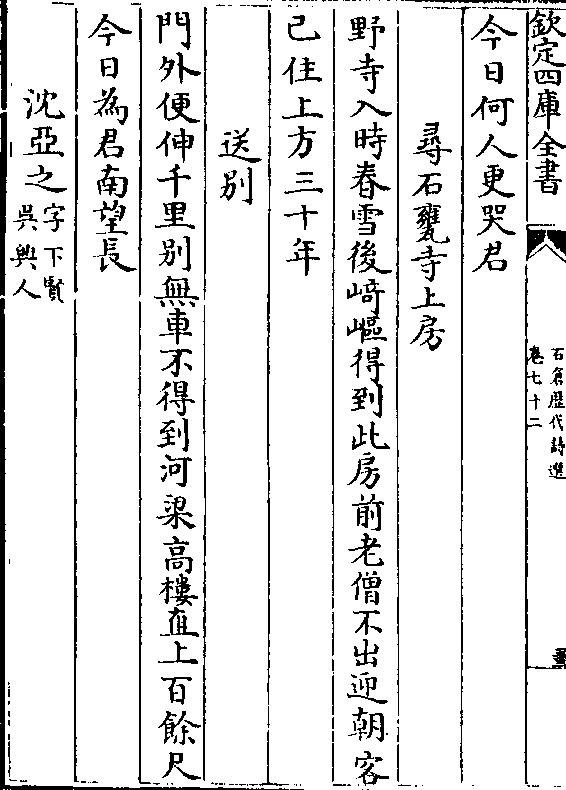 欽定四庫全書
石倉歷代詩選
卷七十二
今日何人更哭君
尋石甕寺上房
野寺入時春雪後崎嶇得到此房前老僧不出迎朝客
已住上方三十年
送别
門外便伸千里别無車不得到河梁高樓直上百餘尺
今日為君南望長
沈亞之字下賢
吳興人